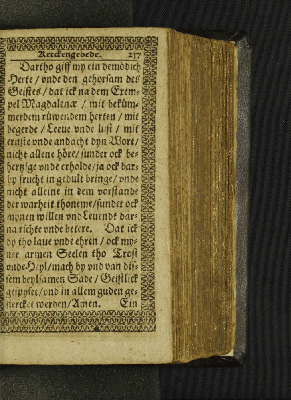 Kerckengebede. 237
Dartho giff my ein demödich
Herte / vnde den gehorsam des
Geistes / dat ick na dem Exem-
pel Magdalenæ / mit beküm-
merdem rüwendem herten / mit
begerde / Leeue vnde lust / mit
ernste vnde andacht dyn Wort /
nicht allene höre / sunder ock be-
hertzige vnde erholde / ja ock dar-
by frucht in gedult bringe / vnde
nicht alleine in dem vorstande
der warheit thoneme / sunder ock
mynen willen vnd Leuendt dar-
na richte vnde betere. Dat ick
dy tho laue vnde ehren / ock my-
ner armen Seelen tho Trost
vnde Heyl / mach by vnd van dis-
sem heylsamen Gade / Geistlick
gespyset / vnd in allem guden ge-
stercket werden / Amen. Ein